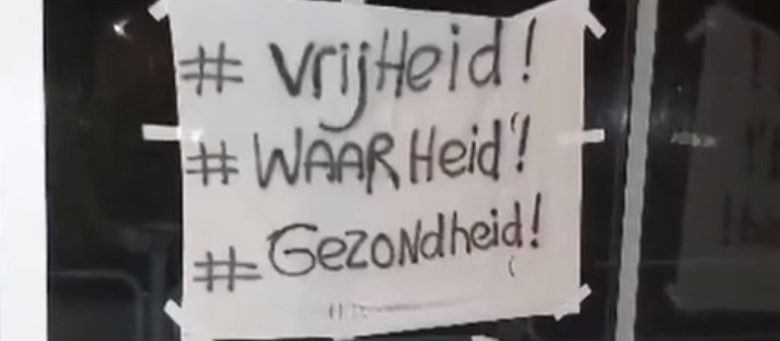 # VrijHeid!
# WAARHeid!
# GezoNdheid!